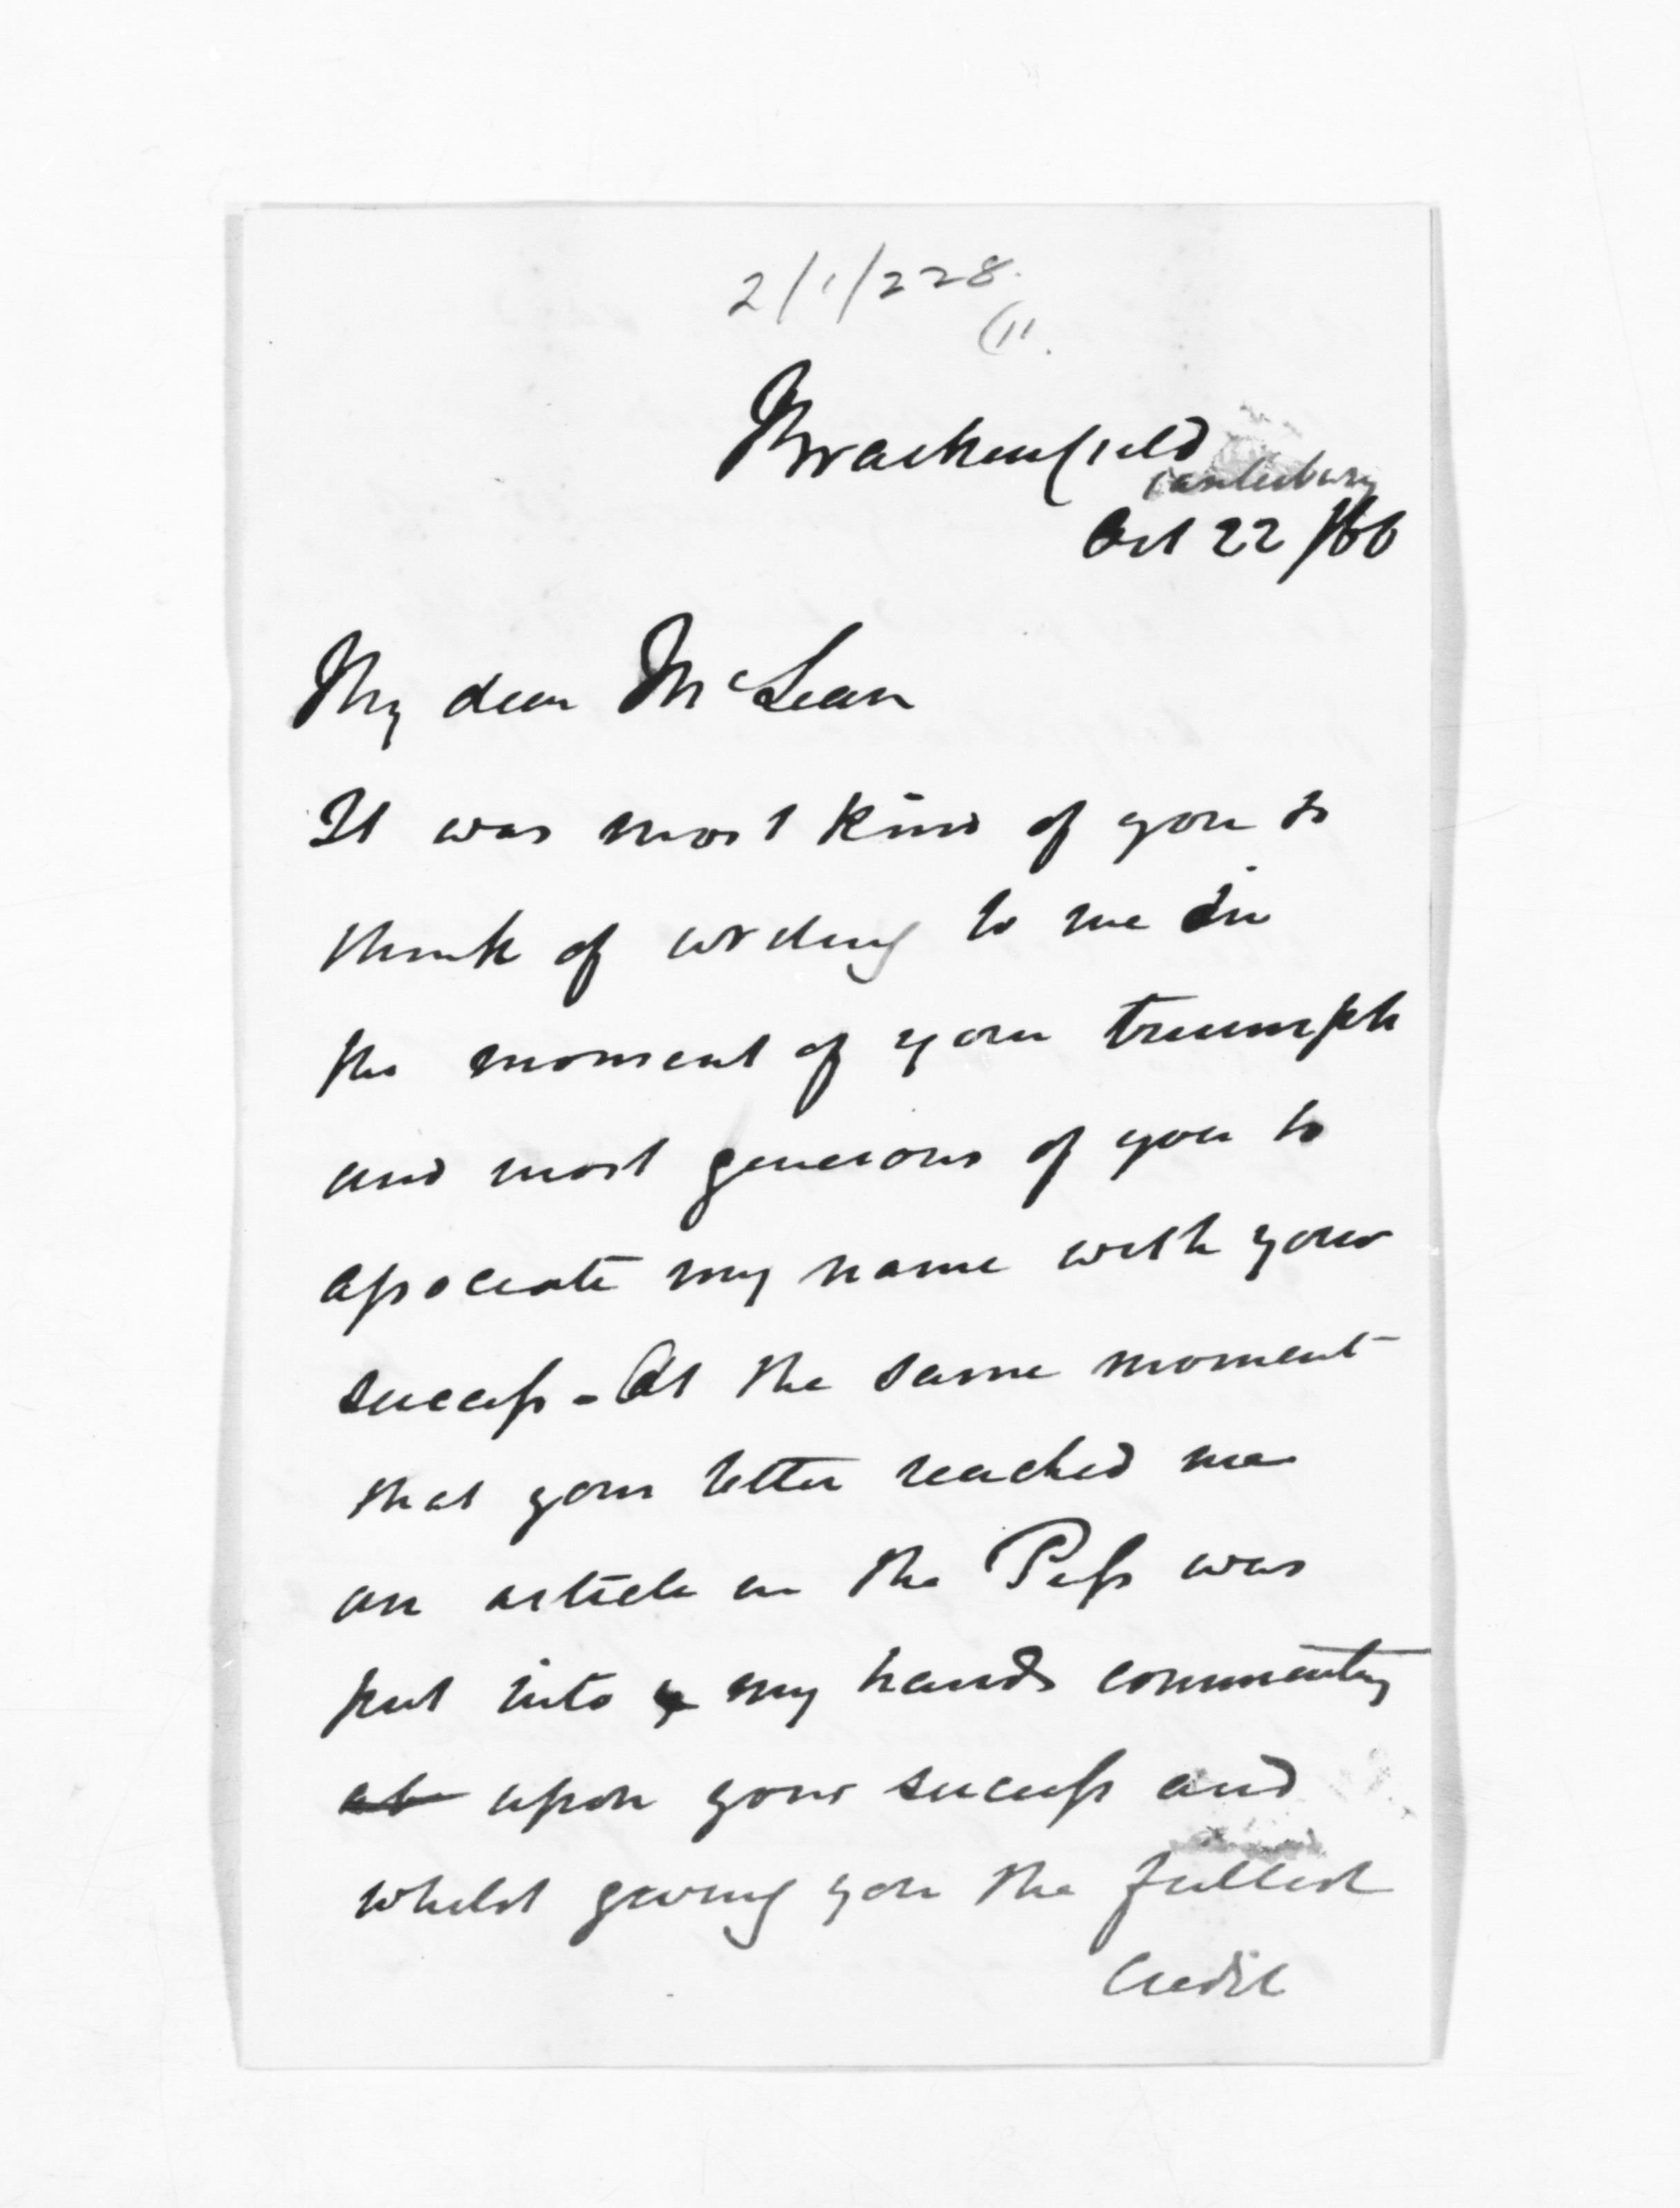 2/1/228
(11.
Brackenfield
Canterbury
Oct 22/66
My dear McLean
It was most kind of you to
think of writing to me in
the moment of your triumph
and most generous of you to
associate my name with your
success - At the same moment
that your letter reached me
an article in the Press was
put into my hands commenting
upon your success and
whilst giving you the fullest
credit